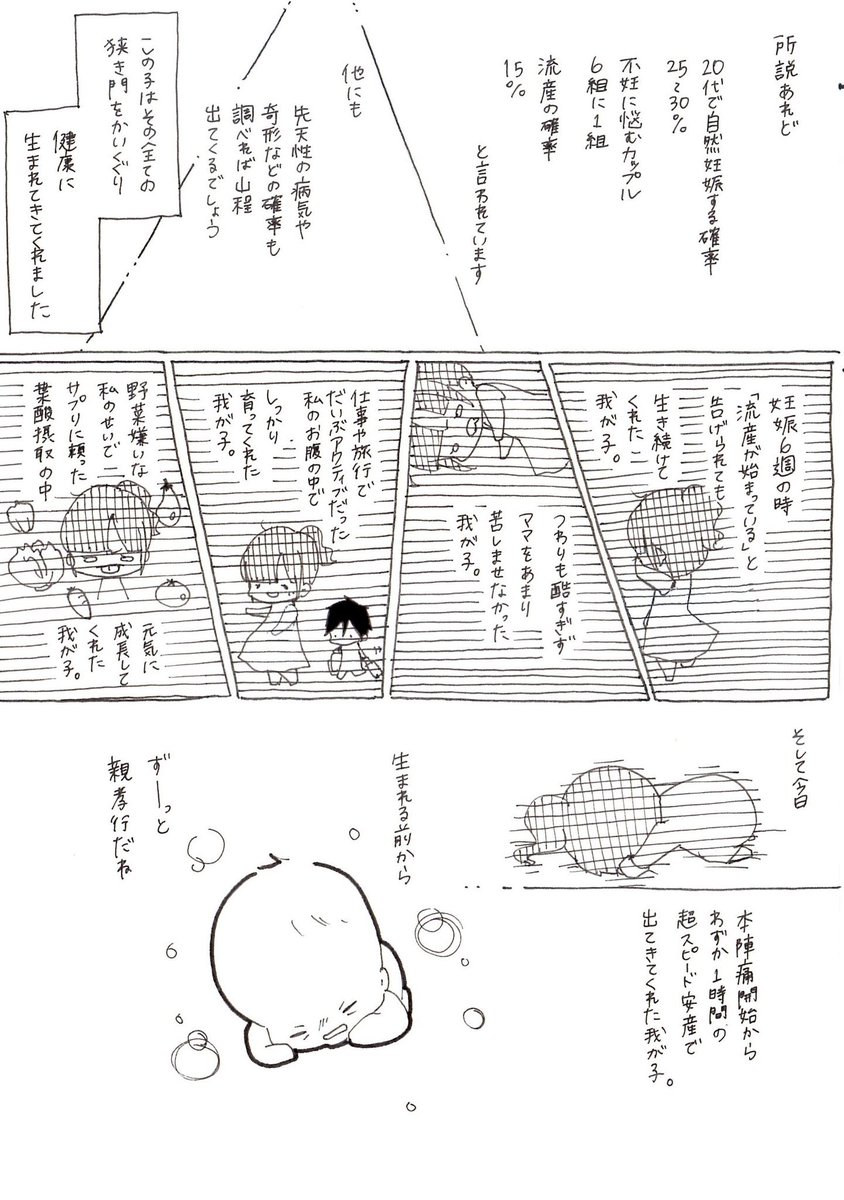 所説あれど
20代で自然妊娠する確率
25~30%
不妊に悩むカップル
6組に1組
流産の確率
15%
と言われています
他にも
先天性の病気や
奇形などの確率も
調べれば山程
出てくるでしょう
この子はその全ての
狭き門をかいくぐり
健康に
生まれてきてくれました
妊娠6週の時
「流産が始まっている」と
告げられても
生き続けて
くれた
我が子。
つわりも酷すぎず
ママをあまり
苦しませなかった
我が子。
仕事や旅行で
だいぶアクティブだった
私のお腹の中で
しっかり
育ってくれた
我が子。
野菜嫌いな
私のせいで
サプリに頼った
葉酸摂取の中
元気に
成長して
くれた
我が子。
そして今日
本陣痛開始から
わずか1時間の
超スピード安産で
出てきてくれた我が子。
生まれる前から
ずーっと
親孝行だね